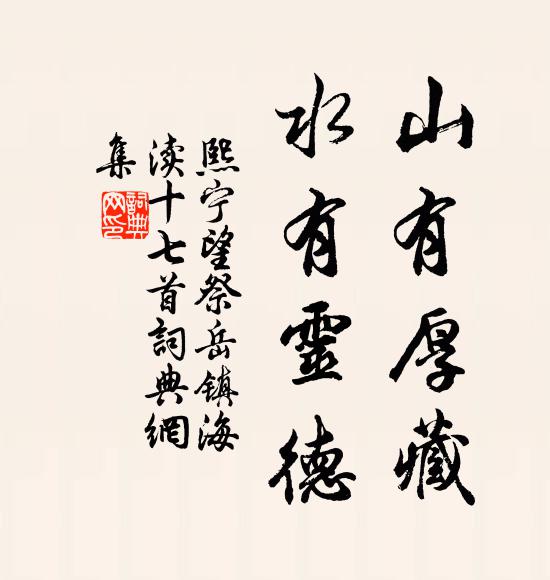 山有厚藏
水有靈德
熙宁望祭岳镇海
渎十七首詞典網
集
詞典
网印